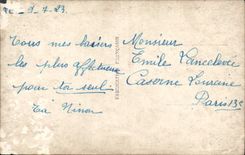 9-7-23.
Tous mes baisers
les plus affectueux
pour toi seul
Ta Ninon
Monsieur
Emile
Caserne Lourcine
Paris 13e